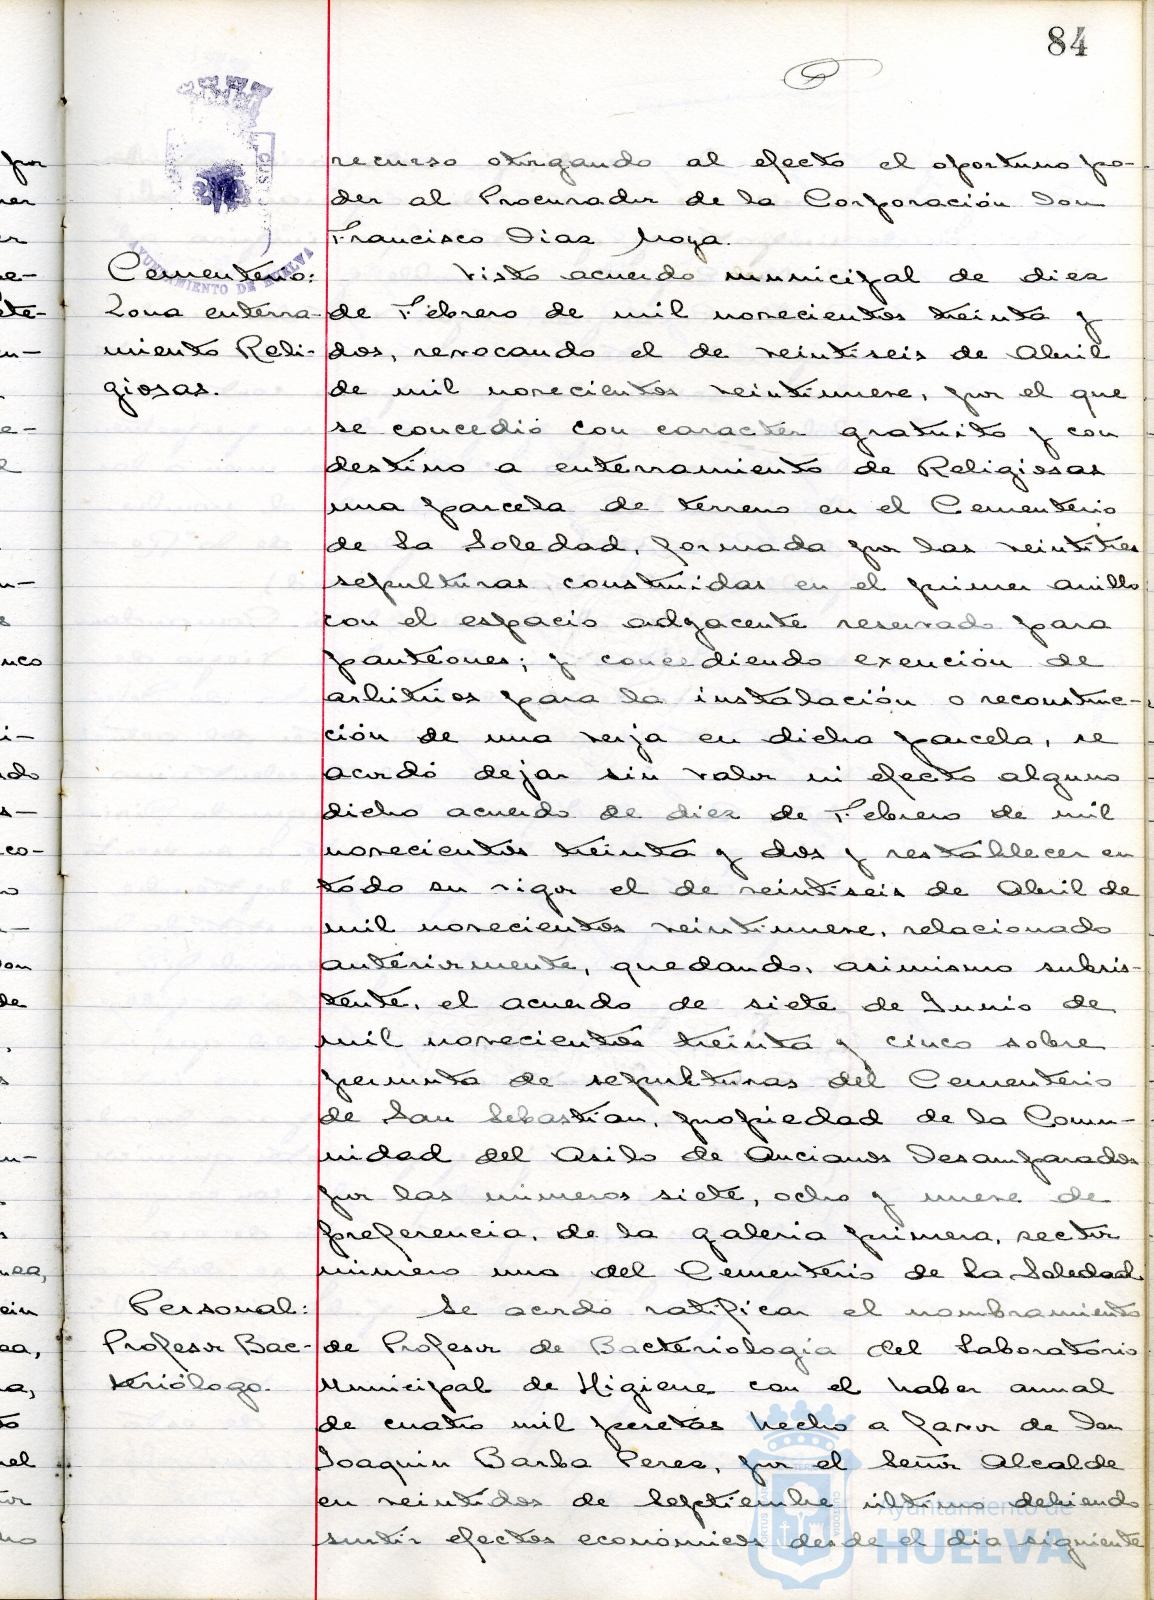 84
recurso otorgando al efecto el oportuno po-
der al Procurador de la Corporación Don
Francisco Díaz Moya.
Cementerio:
Zona enterra-
miento Reli-
giosas.
Visto acuerdo municipal de diez
de Febrero de mil novecientos treinta y
dos, revocando el de veintiseis de Abril
de mil novecientos veintinueve, por el que
se concedió con caracter gratuito y con
destino a enterramiento de Religiosas
una parcela de terreno en el Cementerio
de la Soledad, formada por las veintitres
sepulturas construidas en el primer anillo
con el espacio adyacente reservado para
panteones; y concediendo exención de
arbitrios para la instalación o reconstruc-
ción de una verja en dicha parcela, se
acordó dejar sin valor ni efecto alguno
dicho acuerdo de diez de Febrero de mil
novecientos treinta y dos y restablecer en
todo su vigor el de veintiseis de Abril de
mil novecientos veintinueve, relacionado
anteriormente, quedando, asimismo subsis-
tente, el acuerdo de siete de Junio de
mil novecientos treinta y cinco sobre
permuta de sepulturas del Cementerio
de San Sebastian, propiedad de la Comu-
nidad del Asilo de Ancianos Desamparados
por las números siete, ocho y nueve de
preferencia, de la galeria primera, sector
número uno del Cementerio de la Soledad.
Personal:
Profesor Bac-
teriólogo.
Se acordó ratificar el nombramiento
de Profesor de Bacteriologia del Laboratorio
Municipal de Higiene con el haber anual
de cuatro mil pesetas hecho a favor de Don
Joaquin Barba Perez, por el Señor Alcalde
en veintidos de Septiembre último debiendo
surtir efectos económicos desde el dia siguiente
AYUNTAMIENTO DE HUELVA
Ayuntamiento de
HUELVA